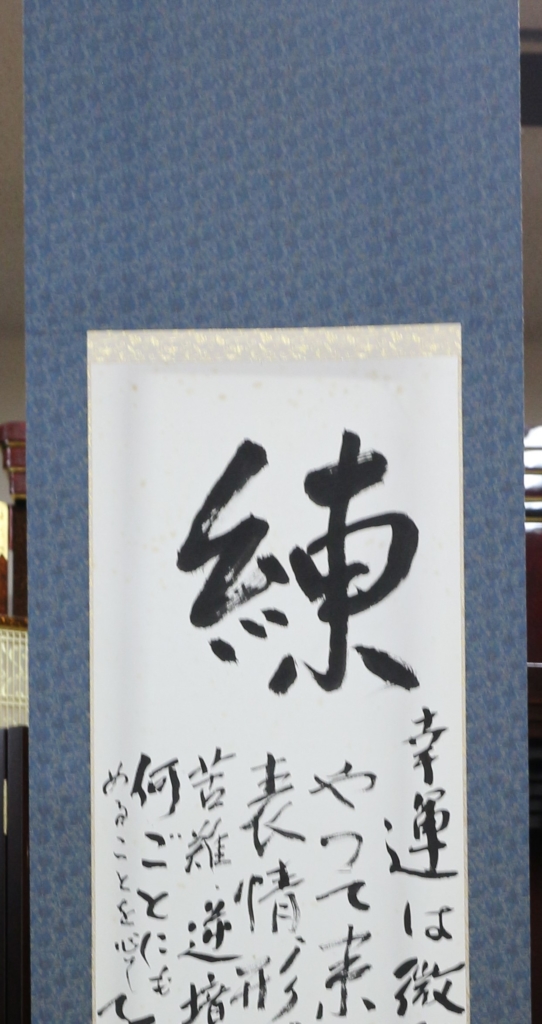 練
幸運は微
やって来
表情形
苦難、逆境
何ごとにも
めることを忘して